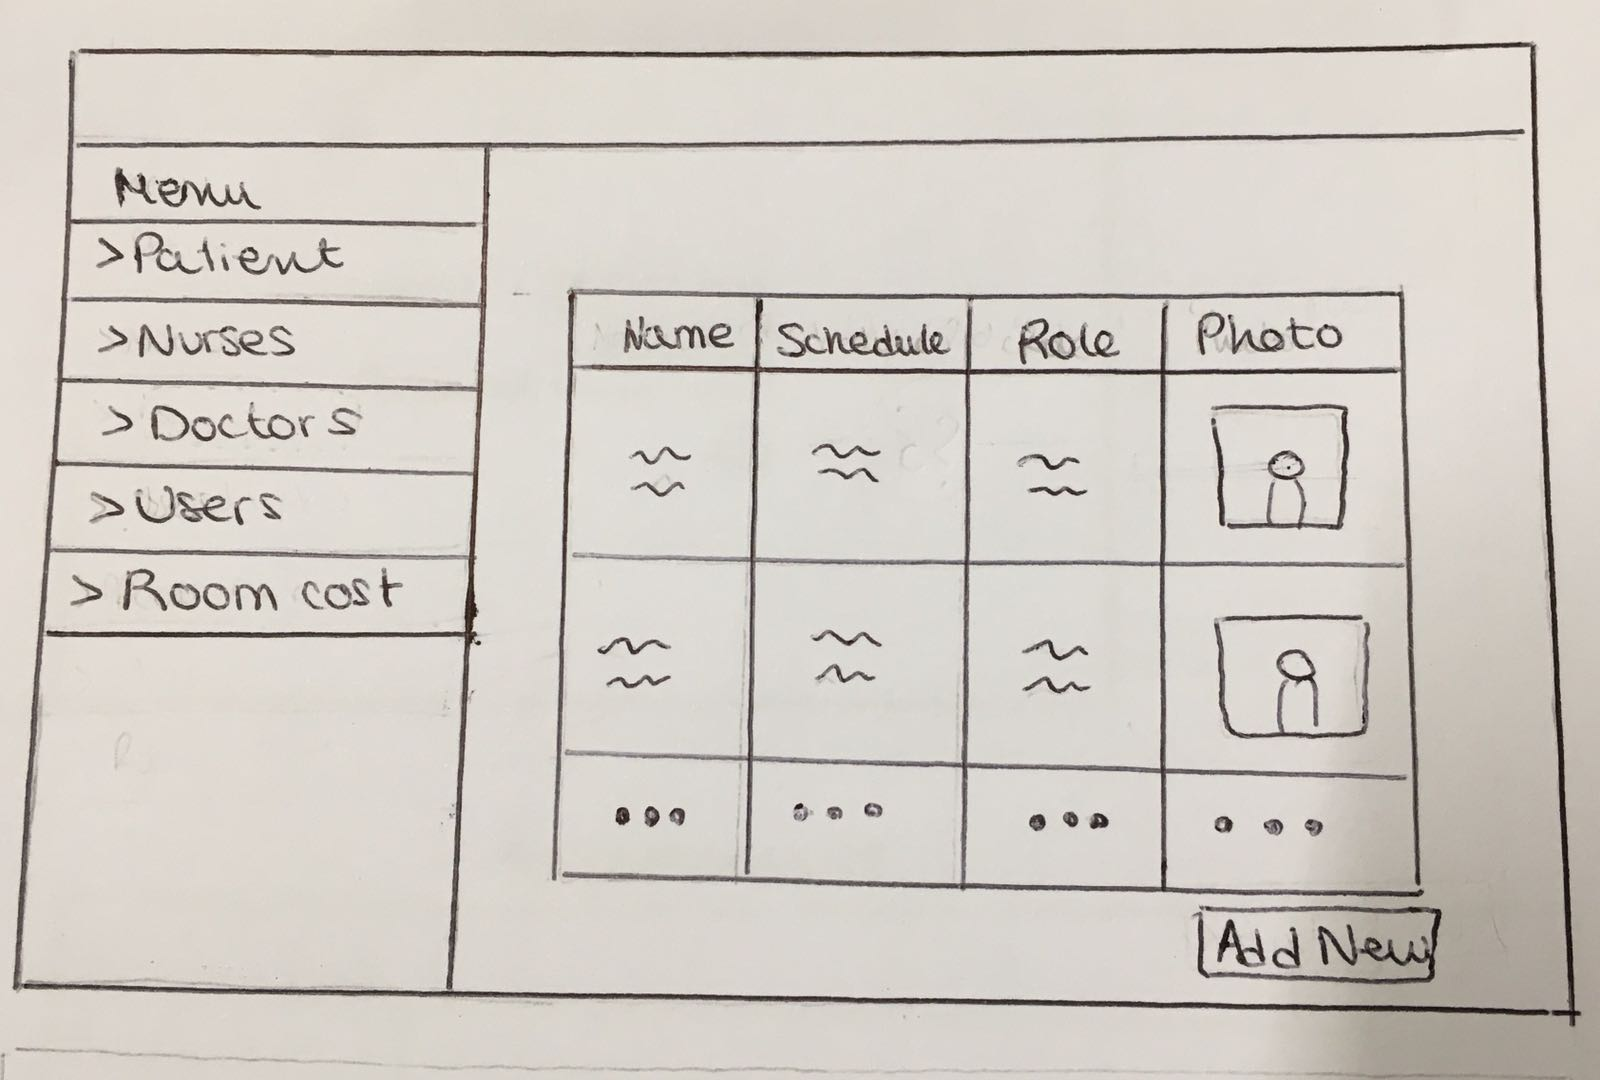 Menu
>Patient
>Nurses
>Doctors
>Users
>Room cost
Name Schedule Role Photo
Add New